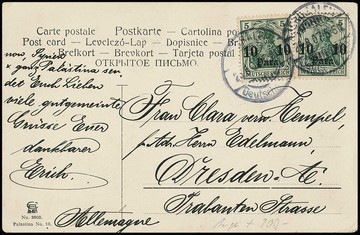 Carte postale Postkarte Cartolina po
Post card — Levelező-Lap — Dopisnice — B
Brefkort — Brevkort — Tarjeta po
ОТКРЫТОЕ ПИСЬМО
5 5
10 10 10
Para Para
Deutsche
now, Syrien
& ganz Palästina sen-
det Euch Lieben
viele gutgemeinte
Grüsse Euer
dankbarer
Erich.
Frau Clara verw. Hempel,
p. Adr. Herrn Edelmann,
Dresden-A.
Trabanten Strasse
Allemagne
Palästina No.